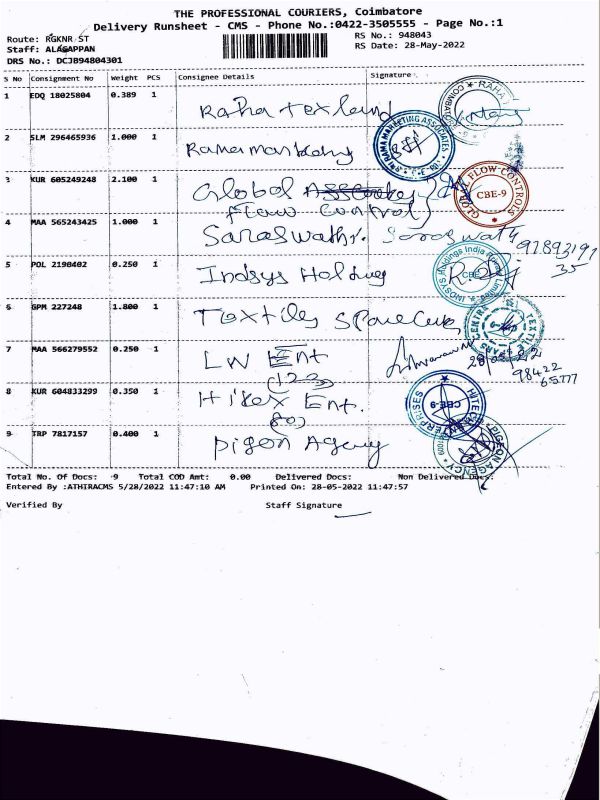 THE PROFESSIONAL COURIERS, Coimbatore
Delivery Runsheet - CMS - Phone No.:0422-3505555 - Page No.:1
Route: RGKNR ST
RS No.: 948043
Staff: ALAGAPPAN
RS Date: 28-May-2022
DRS No.: DCJB94804301
S No Consignment No Weight PCS Consignee Details Signature
1 EDQ 18025804 0.389 1 Raha texland
2 SLM 296465936 1.000 1 Rama marketing
RAMA MARKETING ASSOCIATES
3 KUR 605249248 2.100 1 Global
Flow Control
GLOBAL FLOW CONTROLS CBE-9
4 MAA 565243425 1.000 1 Saraswathi. Saraswathi
9789319135
5 POL 2190402 0.250 1 Indsys Holding
INDSYS Holdings India Limited CBE
6 GPM 227248 1.800 1 Textiles Spare Cen
7 MAA 566279552 0.250 1 LW Ent
(123)
28/05/22
98422
65777
8 KUR 604833299 0.350 1 Hitex Ent.
(80)
HITEC ENTERPRISES CBE-9
9 TRP 7817157 0.400 1 pigon Agency
PIGEON AGENCY
Total No. Of Docs: 9 Total COD Amt: 0.00 Delivered Docs: Non Delivered Docs:
Entered By :ATHIRACMS 5/28/2022 11:47:10 AM Printed On: 28-05-2022 11:47:57
Verified By Staff Signature